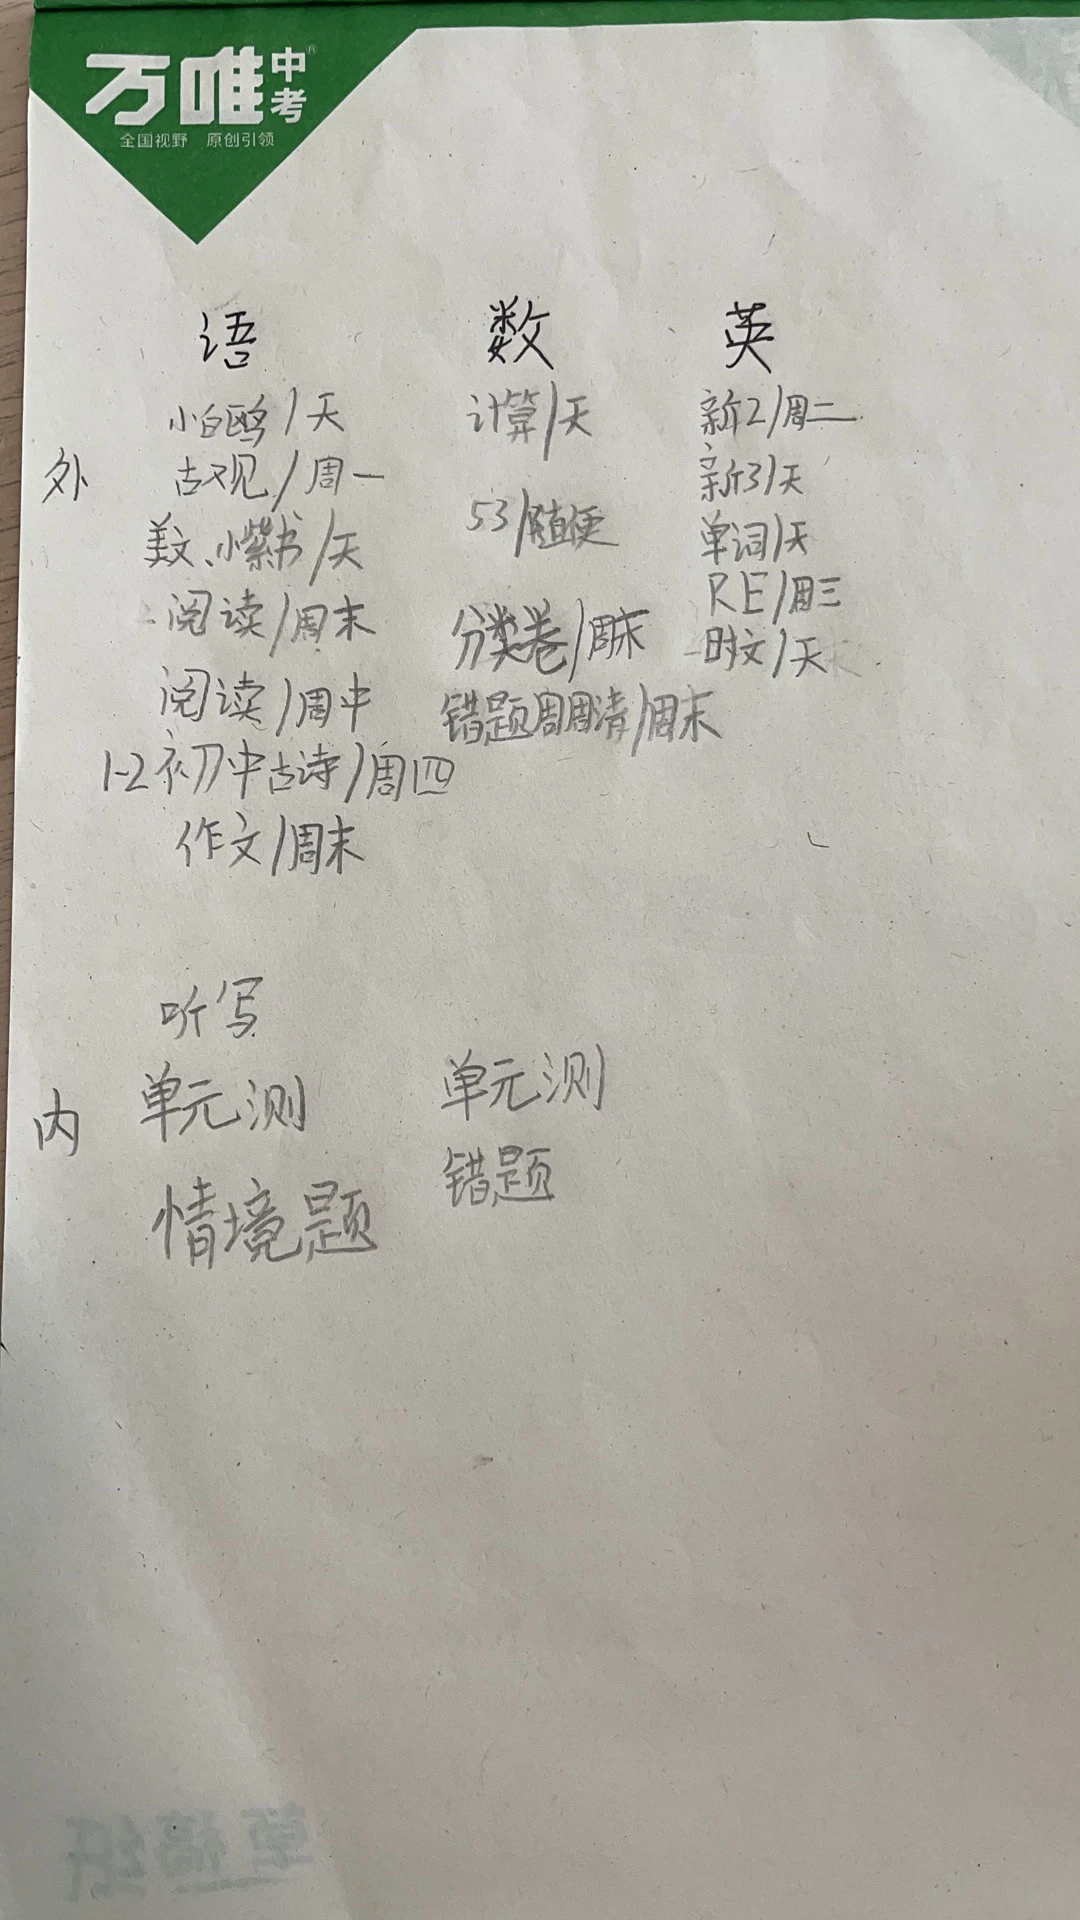 万唯中考
全国视野 原创引领
语 数 英
外
小白鸥/天
古观/周一
美文、小紫书/天
阅读/周末
阅读/周中
1-2初中古诗/周四
作文/周末
计算/天
53/随便
分类卷/周末
错题周周清/周末
新2/周二
新3/天
单词/天
RE/周三
时文/天
内
听写
单元测
情境题
单元测
错题
草稿纸